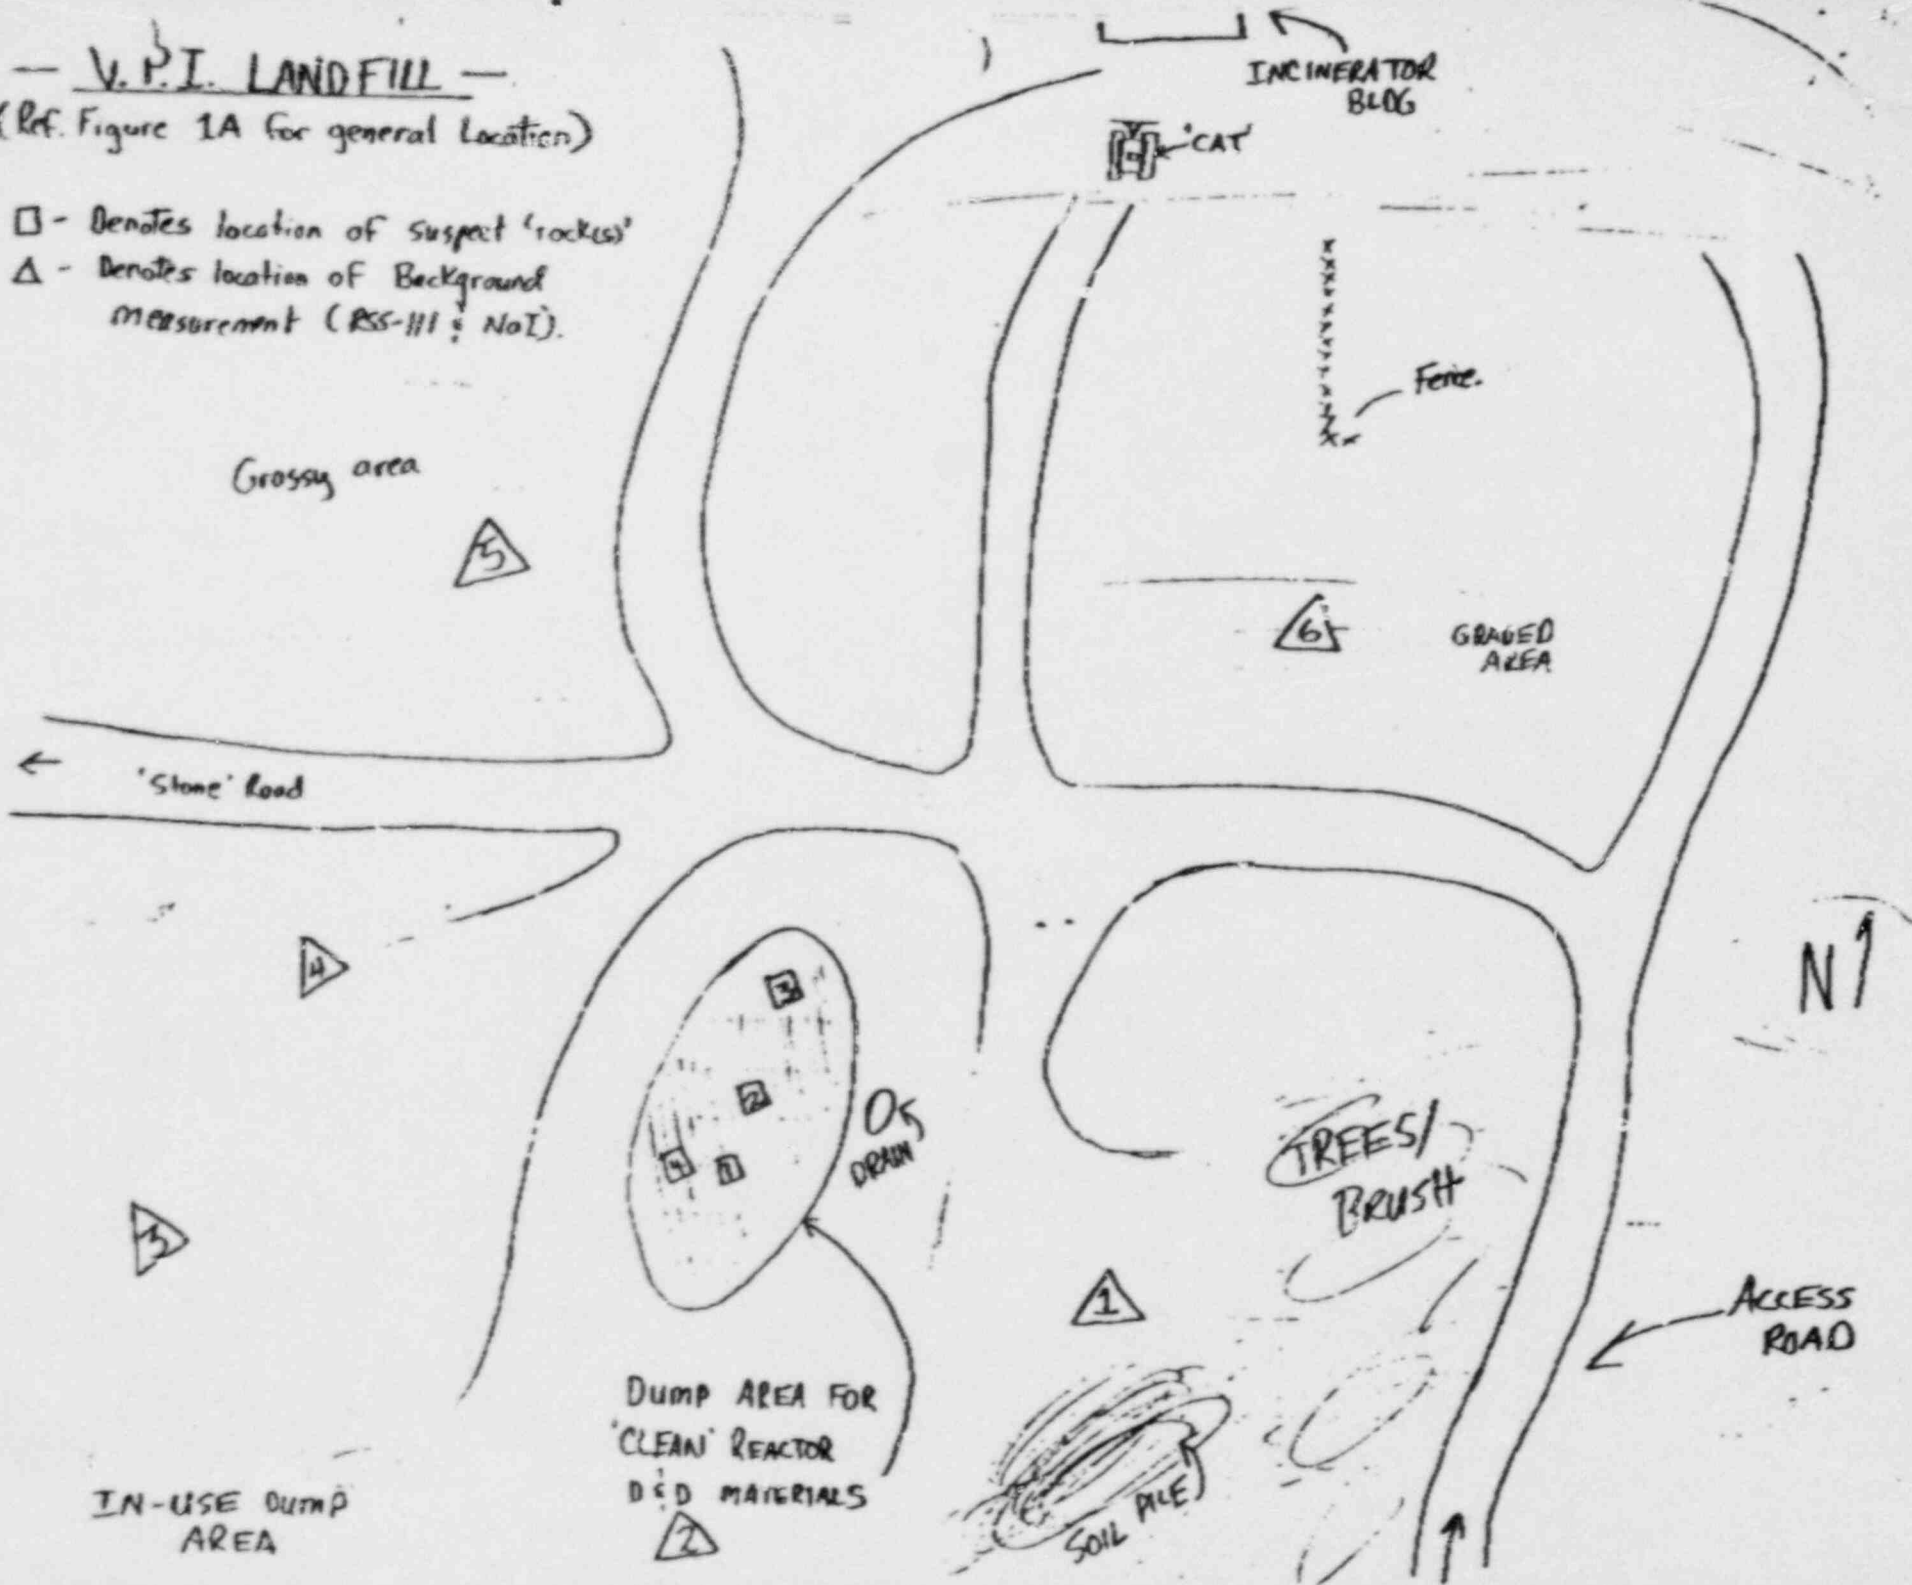 — V.P.I. LANDFILL —
(Ref. Figure 1A for general Location)
□ - Denotes location of suspect 'rock(s)'
△ - Denotes location of Background
measurement (RSS-111 & NaI).
INCINERATOR
BLDG
'CAT'
Fence.
Grassy area
5
6
GRADED
AREA
←
'Stone' Road
4
3
N↑
2
4
1
DRAIN
TREES/
BRUSH
3
1
ACCESS
ROAD
DUMP AREA FOR
'CLEAN' REACTOR
D&D MATERIALS
2
SOIL PILE
IN-USE DUMP
AREA